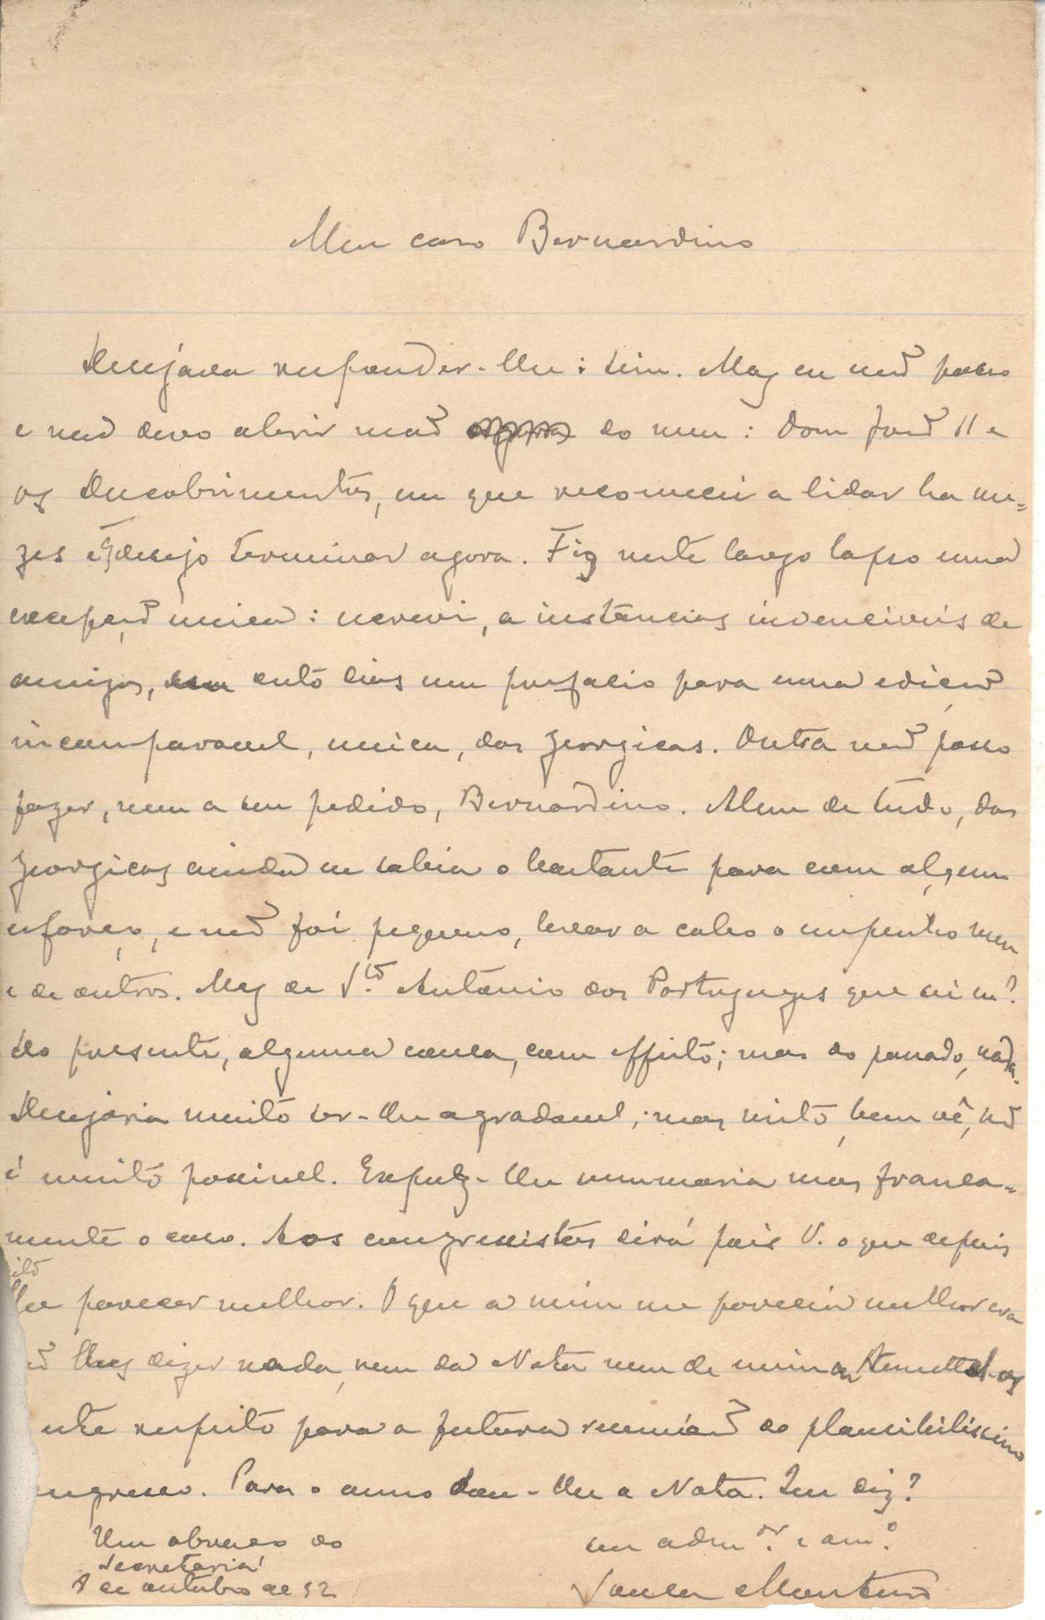 Meu caro Bernardino
Desejava responder-lhe: sim. Mas eu não posso
e não devo abrir mão do meu: Dom João II e
os Descobrimentos, em que recomecei a lidar ha me-
zes e q desejo terminar agora. Fiz neste largo lapso uma
excepção unica: escrevi, a instancias invenciveis de
amigos, outo dias um prefacio para uma edição
incomparavel, unica, das Georgicas. Outra não posso
fazer, nem a seu pedido, Bernardino. Alem de tudo, das
Georgicas ainda eu sabia o bastante para com algum
esforço, e não foi pequeno, levar a cabo o empenho meu
e de outros. Mas de S.to António dos Portuguezes que sei eu?
do presente, alguma cousa, com effeito; mas do passado, nada.
Desejaria muito ser-lhe agradavel; mas nisto, bem vê, não
é muito possivel. Expuz-lhe summaria mas franca-
mente o caso. Aos congressistas dirá pois V. o que depois
lhe parecer melhor. O que a mim me parecia melhor era
lhes dizer nada, nem da Nota nem de mim
este respeito para a futura reunião do plausibilissimo
ongresso. Para o anno dou-lhe a Nota. Que diz?
Um abraço do
Secretaria
8 de outubro de 92
seu adm.or e am.o